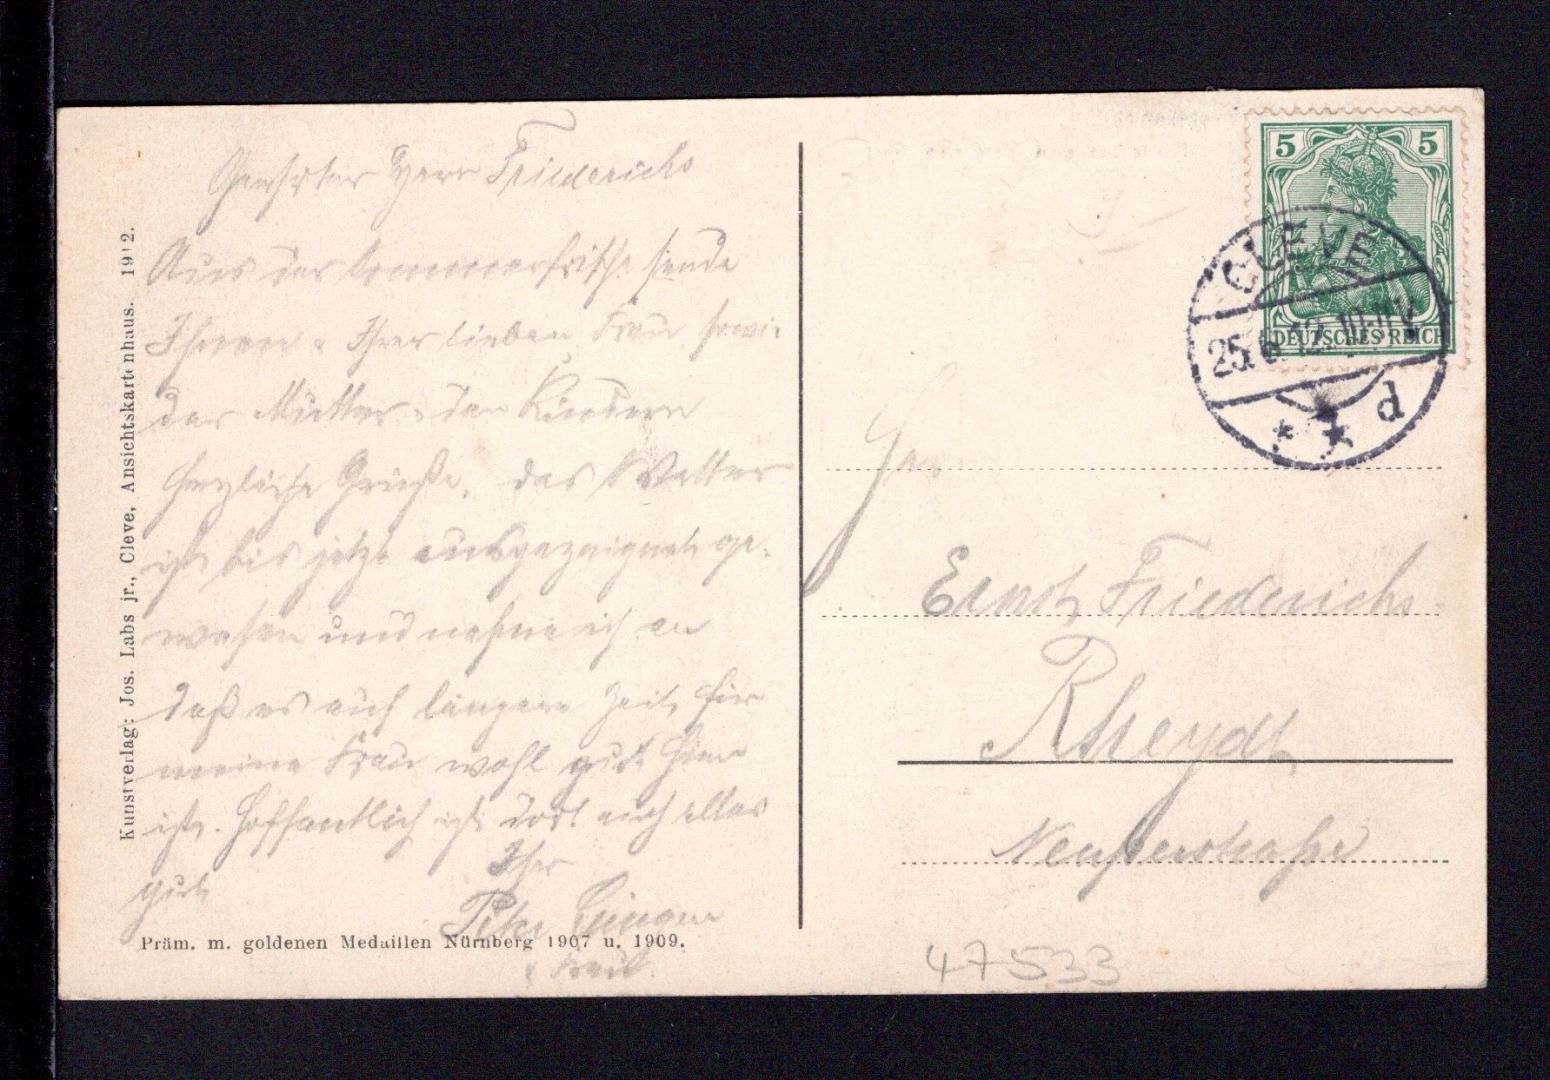 Geehrter Herr Friederichs
Aus der Sommerfrische sende
Ihnen u. Ihrer lieben Frau sowie
der Mutter u. den Kindern
herzliche Grüße, das Wetter
ist bis jetzt ausgezeignet ge-
wesen und nehme ich an
daß es auch längere Zeit für
meine Frau wohl gut hier
ist. Hoffentlich ist dort auch alles
gut
Ihr
Peter
u Frau.
Kunstverlag: Jos. Labs jr., Cleve, Ansichtskartenhaus. 1912.
Präm. m. goldenen Medaillen Nürnberg 1907 u. 1909.
5 5
DEUTSCHES REICH
CLEVE
25.6.12.10-11V
* * d
Herrn
Ernst Friederichs
Rheydt
Neußerstraße
47533